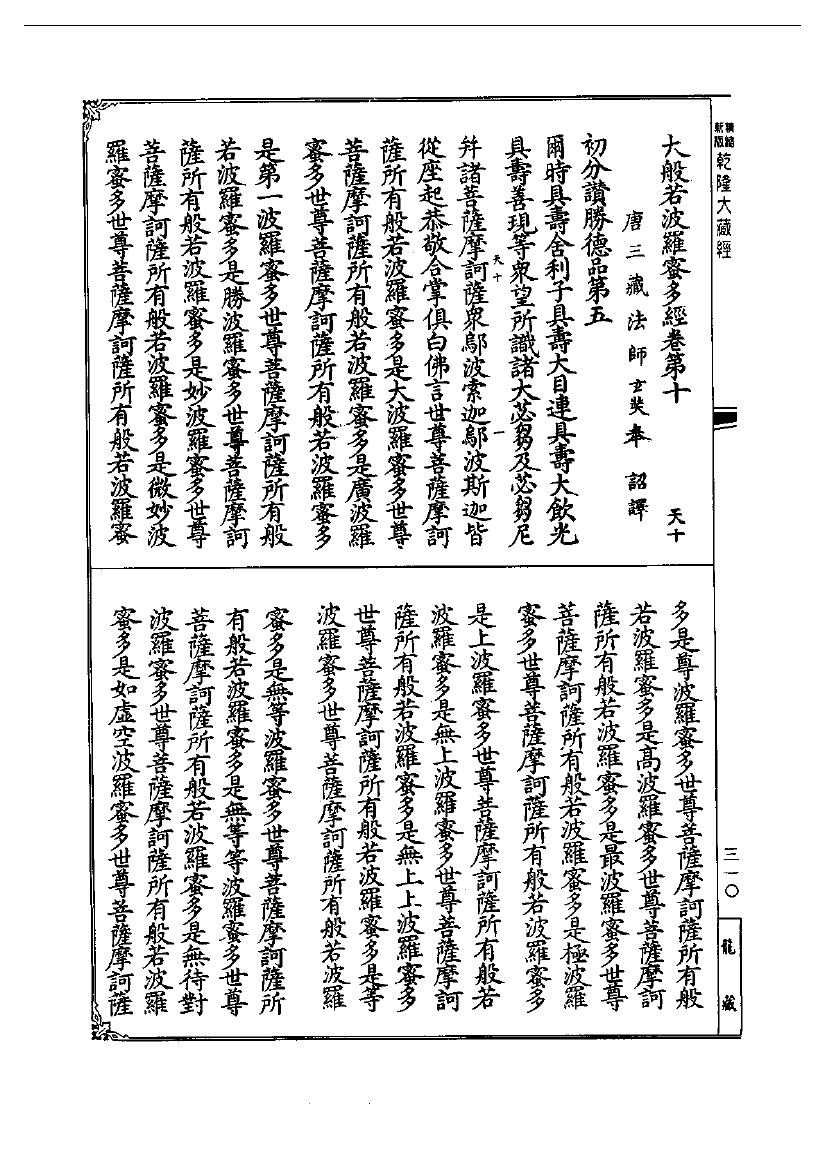 精縮新版 乾隆大藏經
大般若波羅蜜多經卷第十 天十
唐三藏法師玄奘奉 詔譯
初分讚勝德品第五
爾時具壽舍利子具壽大目連具壽大飲光
具壽善現等眾望所識諸大苾芻及苾芻尼
天十 一
并諸菩薩摩訶薩眾鄔波索迦鄔波斯迦皆
從座起恭敬合掌俱白佛言世尊菩薩摩訶
薩所有般若波羅蜜多是大波羅蜜多世尊
菩薩摩訶薩所有般若波羅蜜多是廣波羅
蜜多世尊菩薩摩訶薩所有般若波羅蜜多
是第一波羅蜜多世尊菩薩摩訶薩所有般
若波羅蜜多是勝波羅蜜多世尊菩薩摩訶
薩所有般若波羅蜜多是妙波羅蜜多世尊
菩薩摩訶薩所有般若波羅蜜多是微妙波
羅蜜多世尊菩薩摩訶薩所有般若波羅蜜
多是尊波羅蜜多世尊菩薩摩訶薩所有般
若波羅蜜多是高波羅蜜多世尊菩薩摩訶
薩所有般若波羅蜜多是最波羅蜜多世尊
菩薩摩訶薩所有般若波羅蜜多是極波羅
蜜多世尊菩薩摩訶薩所有般若波羅蜜多
是上波羅蜜多世尊菩薩摩訶薩所有般若
波羅蜜多是無上波羅蜜多世尊菩薩摩訶
薩所有般若波羅蜜多是無上上波羅蜜多
世尊菩薩摩訶薩所有般若波羅蜜多是等
波羅蜜多世尊菩薩摩訶薩所有般若波羅
蜜多是無等波羅蜜多世尊菩薩摩訶薩所
有般若波羅蜜多是無等等波羅蜜多世尊
菩薩摩訶薩所有般若波羅蜜多是無待對
波羅蜜多世尊菩薩摩訶薩所有般若波羅
蜜多是如虛空波羅蜜多世尊菩薩摩訶薩
三一〇
龍藏